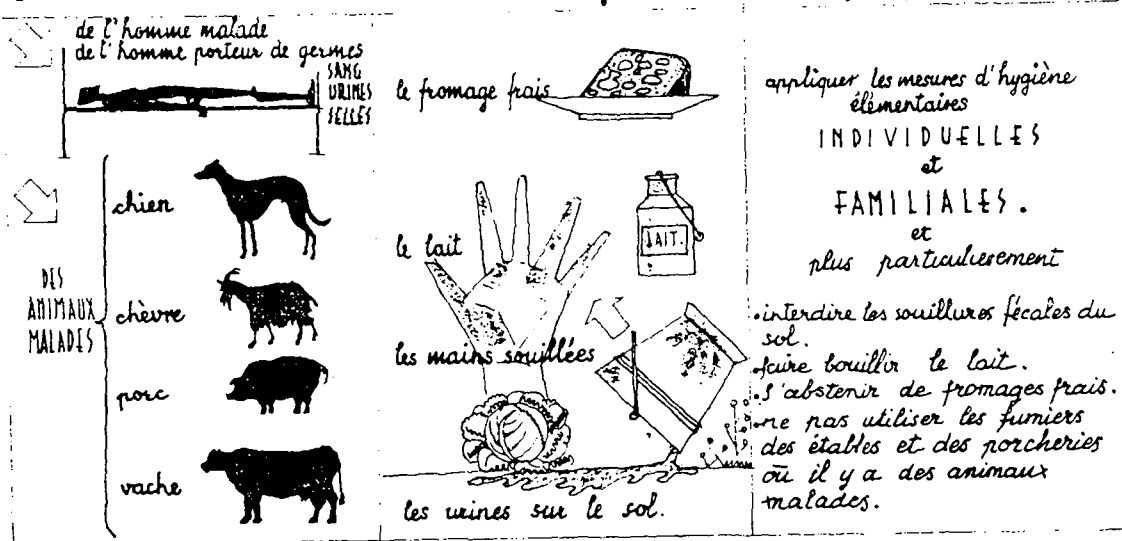 de l'homme malade
de l'homme porteur de germes
SANG
URINES
SELLES
DES
ANIMAUX
MALADES
chien
chèvre
porc
vache
le fromage frais
le lait
LAIT.
les mains souillées
les urines sur le sol.
appliquer les mesures d'hygiène
élémentaires
INDIVIDUELLES
et
FAMILIALES.
et
plus particulièrement
.interdire les souillures fécales du
sol.
.faire bouillir le lait.
.s'abstenir de fromages frais.
.ne pas utiliser les fumiers
des étables et des porcheries
où il y a des animaux
malades.